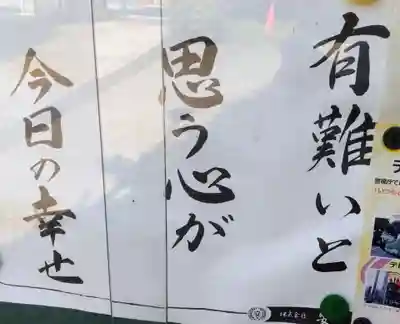 有難いと
思う心が
今日の幸せ
株式会社